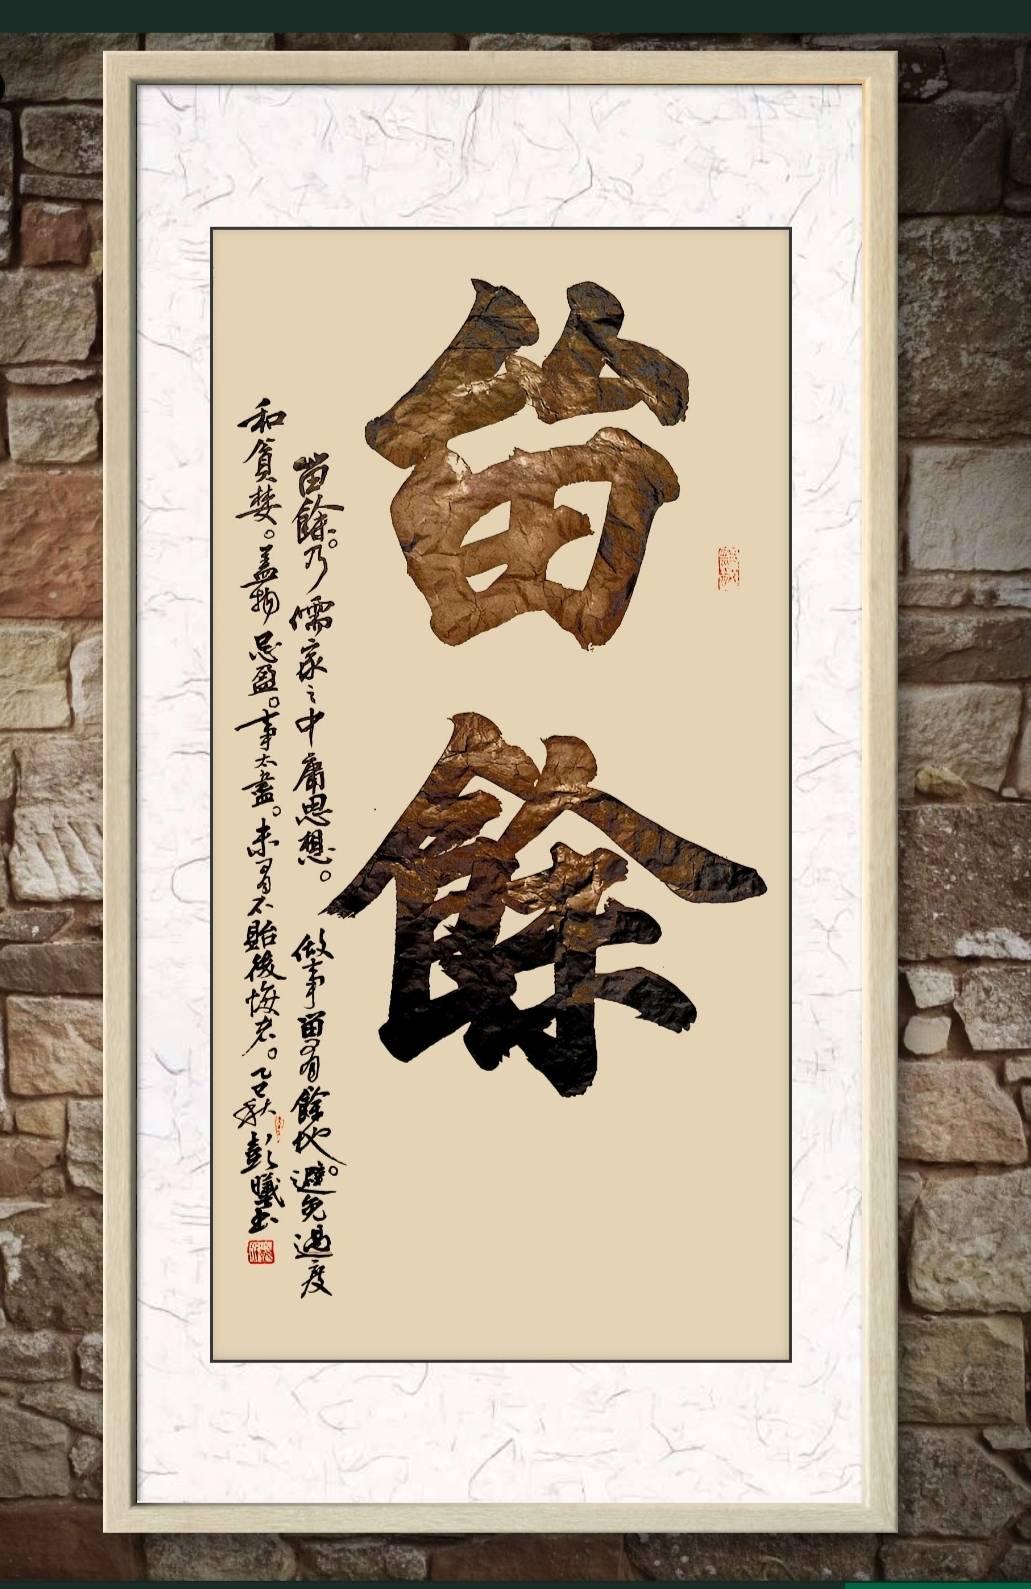 留餘
留餘。乃儒家之中庸思想。做事留有餘地。避免過度
和貪婪。盖物忌盈。事太盡。未有不貽後悔者。乙巳秋彭曦書